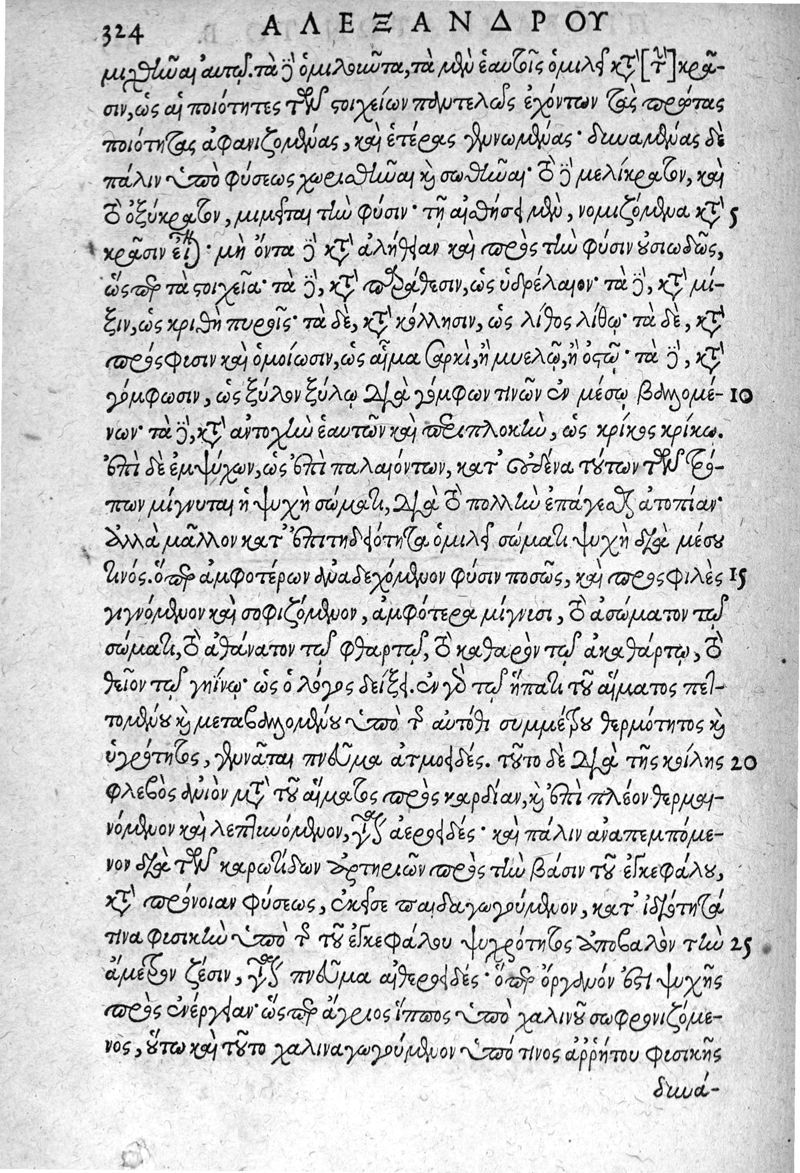 324 ΑΛΕΞΑΝΔΡΟΥ
μιχθῆναι αὐτῷ. τὰ γὰρ ὁμιλοῦντα, τὰ μὲν ἑαυτοῖς ὁμιλεῖ κατὰ [τὴν] κρᾶ-
σιν, ὡς αἱ ποιότητες τῶν στοιχείων παντελῶς ἐχόντων τὰς πρώτας
ποιότητας ἀφανιζομένας, καὶ ἑτέρας γινωμένας· δυναμένας δὲ
πάλιν ὑπὸ φύσεως χωρισθῆναι καὶ σωθῆναι· τὸ γὰρ μελίκρατον, καὶ
τὸ ὀξύκρατον, μιμεῖται τὴν φύσιν· τῇ αἰσθήσει μὲν, νομιζόμενα κατὰ 5
κρᾶσιν εἶναι· μὴ ὄντα γὰρ κατ' ἀλήθειαν καὶ πρὸς τὴν φύσιν οὐσιωδῶς,
ὥσπερ τὰ στοιχεῖα· τὰ γὰρ, κατὰ παράθεσιν, ὡς ὑδρέλαιον· τὰ γὰρ, κατὰ μί-
ξιν, ὡς κριθὴ πυροῖς· τὰ δὲ, κατὰ κόλλησιν, ὡς λίθος λίθῳ· τὰ δὲ, κατὰ
πρόσφισιν καὶ ὁμοίωσιν, ὡς αἷμα σαρκὶ, ἢ μυελῷ, ἢ ὀστῷ· τὰ γὰρ, κατὰ
γόμφωσιν, ὡς ξύλον ξύλῳ διὰ γόμφων τινῶν ἐν μέσῳ βαλλομέ- 10
νων· τὰ γὰρ, κατὰ ἀντοχὴν ἑαυτῶν καὶ περιπλοκὴν, ὡς κρίκος κρίκῳ.
ἐπὶ δὲ ἐμψύχων, ὡς ἐπὶ παλαιόντων, κατ' οὐδένα τούτων τῶν τρό-
πων μίγνυται ἡ ψυχὴ σώματι, διὰ τὸ πολλὴν ἐπάγεσθαι ἀτοπίαν·
ἀλλὰ μᾶλλον κατ' ἐπιτηδειότητα ὁμιλεῖ σώματι ψυχὴ διὰ μέσου
τινός. ὅπερ ἀμφοτέρων ἀναδεχόμενον φύσιν ποσῶς, καὶ προσφιλὲς 15
γιγνόμενον καὶ σοφιζόμενον, ἀμφότερα μίγνισι, τὸ ἀσώματον τῷ
σώματι, τὸ ἀθάνατον τῷ φθαρτῷ, τὸ καθαρὸν τῷ ἀκαθάρτῳ, τὸ
θεῖον τῷ γηίνῳ· ὡς ὁ λόγος δείξει. ἐν γὰρ τῷ ἥπατι τοῦ αἵματος πεπ-
τομένου καὶ μεταβαλλομένου ὑπὸ τῆς αὐτόθι συμμέτρου θερμότητος καὶ
ὑγρότητος, γεννᾶται πνεῦμα ἀτμοειδές. τοῦτο δὲ διὰ τῆς κοίλης 20
φλεβὸς ἀνιὸν μετὰ τοῦ αἵματος πρὸς καρδίαν, καὶ ἐπὶ πλέον θερμαι-
νόμενον καὶ λεπτυνόμενον, γίνεται ἀεροειδές· καὶ πάλιν ἀναπεμπόμε-
νον διὰ τῶν καρωτίδων ἀρτηριῶν πρὸς τὴν βάσιν τοῦ ἐγκεφάλου,
κατὰ πρόνοιαν φύσεως, ἐκεῖσε παιδαγωγούμενον, κατ' ἰδιότητά
τινα φισικὴν ὑπὸ τῆς τοῦ ἐγκεφάλου ψυχρότητος ἀποβαλὸν τὴν 25
ἄμετρον ζέσιν, γίνεται πνεῦμα αἰθεροειδές· ὅπερ ὄργανόν ἐστι ψυχῆς
πρὸς ἐνέργειαν· ὥσπερ ἄγριος ἵππος ὑπὸ χαλινοῦ σωφρονιζόμε-
νος, οὕτω καὶ τοῦτο χαλιναγωγούμενον ὑπό τινος ἀῤῥήτου φισικῆς
δυνά-